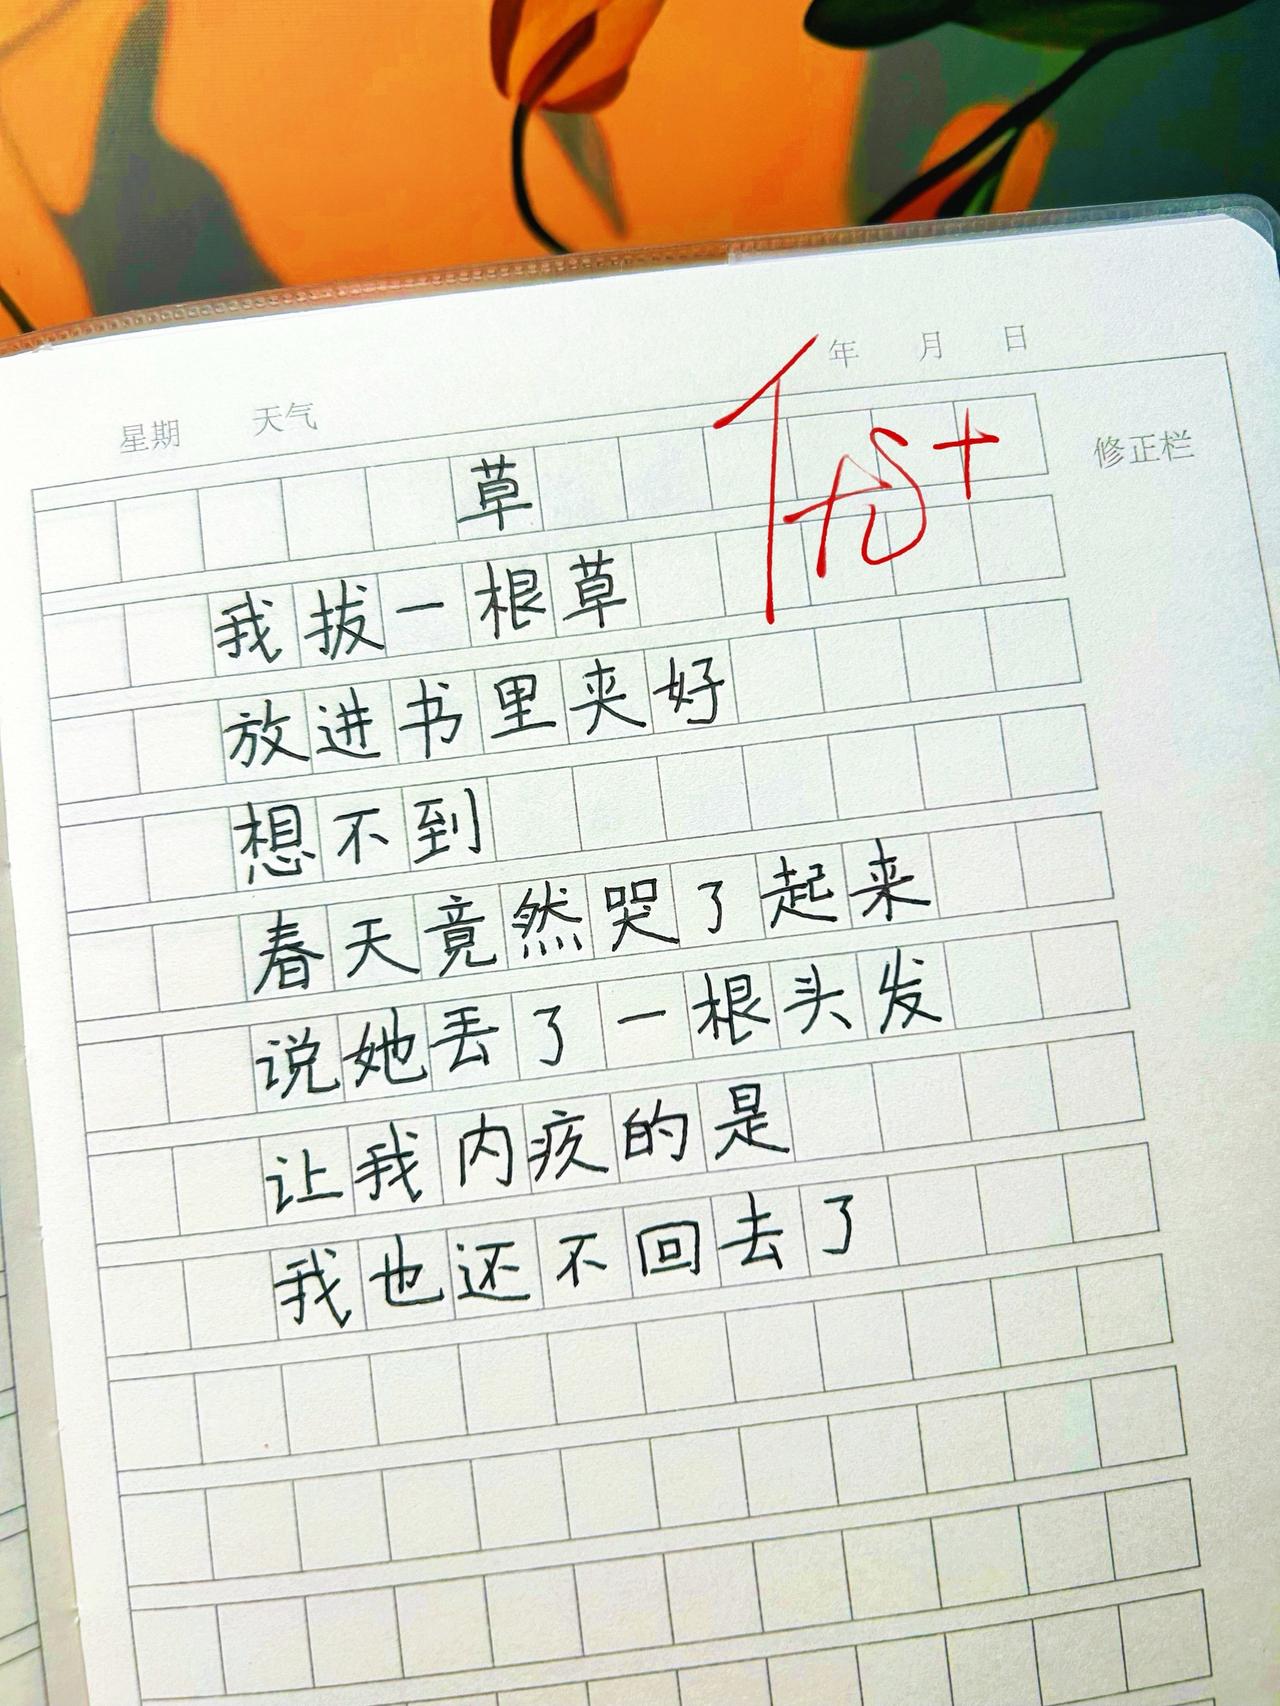 年 月 日
星期 天气
修正栏
草
我拔一根草
放进书里夹好
想不到
春天竟然哭了起来
说她丢了一根头发
让我内疚的是
我也还不回去了